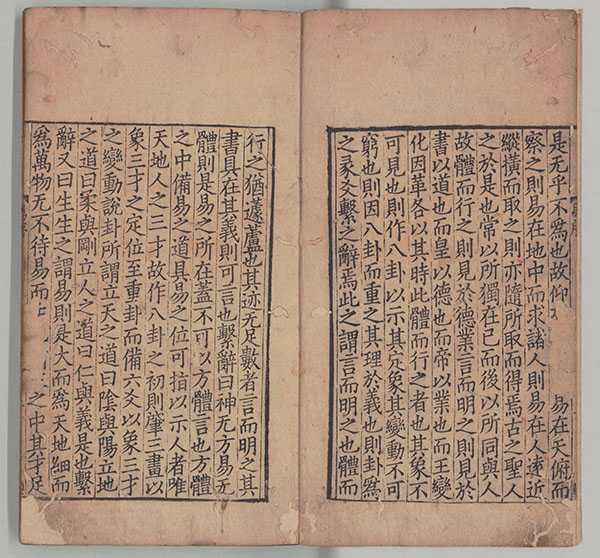 是无乎不為也故仰 易在天俯而
察之則易在地中而求諸人則易在人遠近
縱橫而取之則亦隨所取而得焉古之聖人
之於是也常以所獨在已而後以所同與人
故體而行之則見於德業言而明之則見於
書以道也而皇以德也而帝以業也而王變
化因革各以其時此體而行之者也其象不
可見也則作八卦以示其定象其變動不可
窮也則因八卦而重之其理於義也則卦爲
之彖爻繫之辭焉此之謂言而明之也體而
行之猶蘧蘆也其迹无足數者言而明之其
書具在其義則可言也繫辭曰神无方易无
體則是易之所在蓋不可以方體言也方體
之中備易之道具易之位可指以示人者唯
天地人之三才故作八卦之初則肇三畫以
象三才之定位至重卦而備六爻以象三才
之變動說卦所謂立天之道曰陰與陽立地
之道曰柔與剛立人之道曰仁與義是也繫
辭又曰生生之謂易則是大而為天地細而
為萬物无不待易而 之中其才足